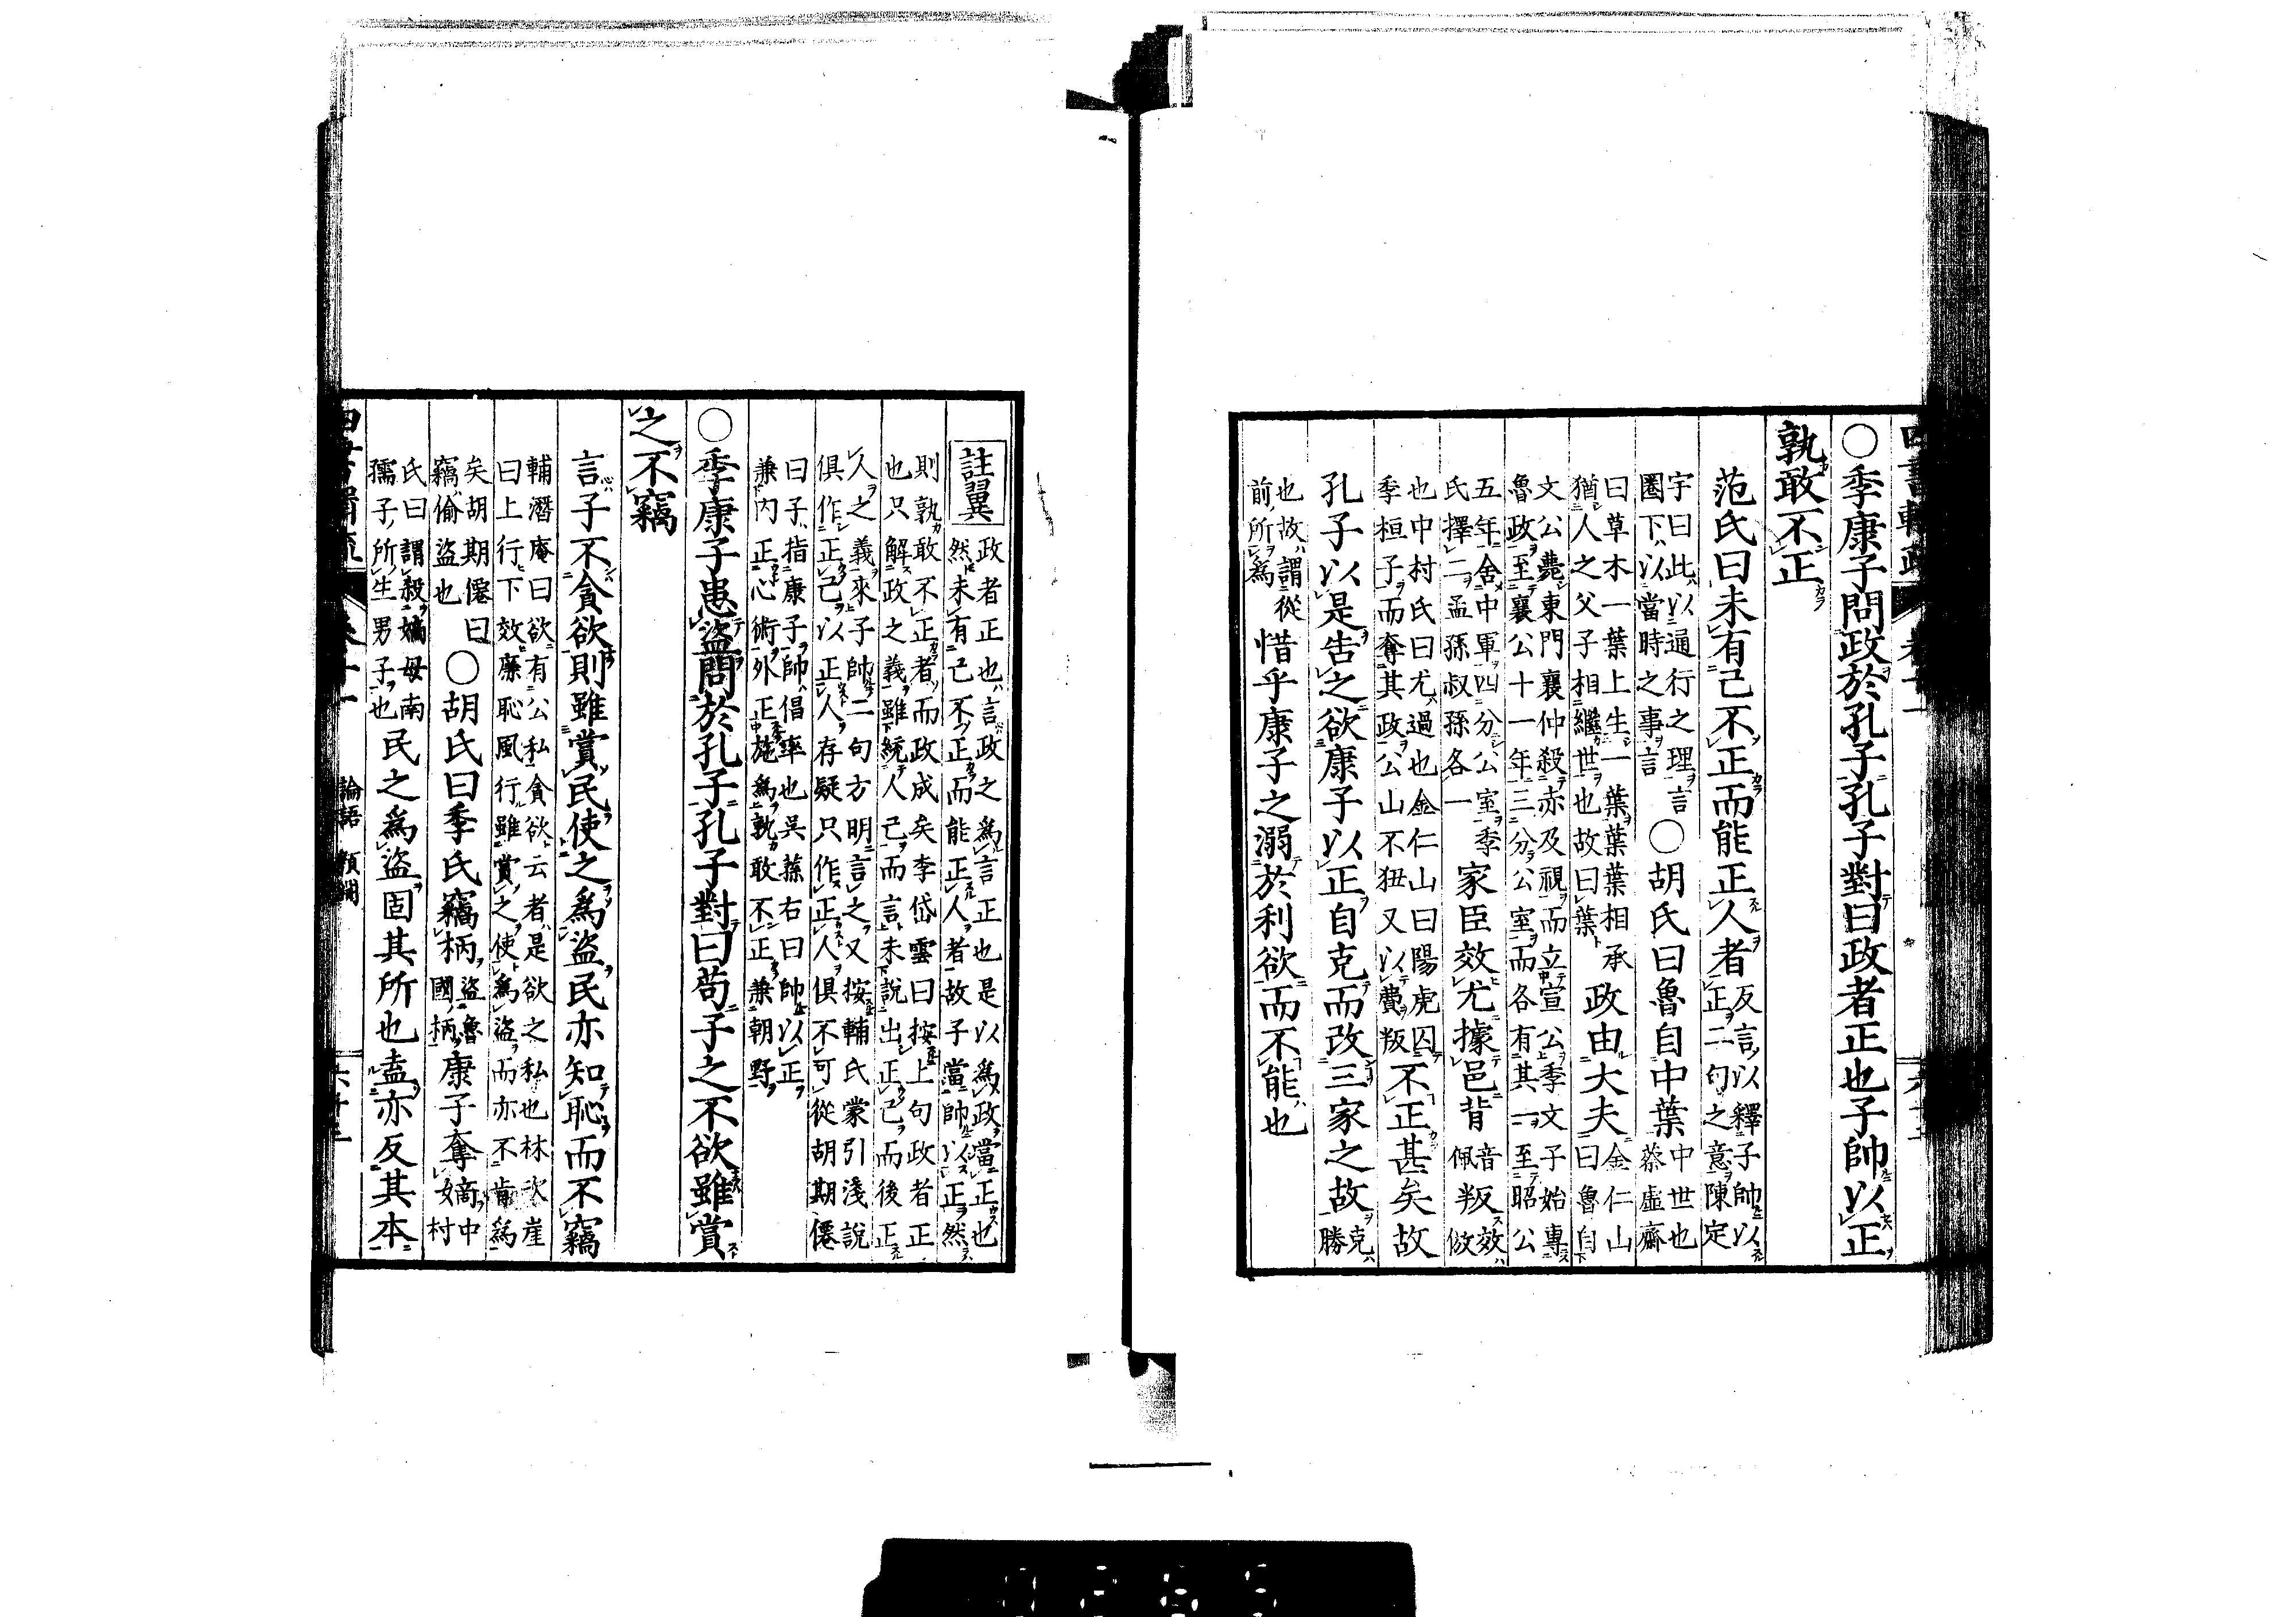 ○季康子問政於孔子孔子對曰政者正也子帥以正
孰敢不正
范氏曰未有己不正而能正人者反言以釋子帥以正二句之意陳定
宇曰此以通行之理言圏下以當時之事言○胡氏曰魯自中葉中世也蔡虛齋
曰草木一葉上生一葉葉葉相承猶人之父子相繼世也故曰葉政由大夫金仁山曰魯自
文公薨東門襄仲殺赤及視而立宣公季文子始專魯政至襄公十一年三分公室而各有其一至昭公
五年舍中軍四分公室季氏擇二孟孫叔孫各一家臣效尤據邑背音佩叛效倣
也中村氏曰尤過也金仁山曰陽虎囚季桓子而奪其政公山不狃又以費叛不正甚矣故
孔子以是告之欲康子以正自克而改三家之故克勝
也故謂從前所爲惜乎康子之溺於利欲而不能也
註翼政者正也言政之爲言正也是以爲政當正也然未有己不正而能正人者故子當帥以正然
則孰敢不正者而政成矣李岱雲曰按上句政者正也只解政之義雖統人己而言未說出正己而後正
人之義來子帥二句方明言之又按輔氏蒙引淺說俱作正己以正人存疑只作正人俱不可從胡期僊
曰子指康子帥倡率也吳蓀右曰帥以正兼内正心術外正施爲孰敢不正兼朝野
○季康子患盜問於孔子孔子對曰苟子之不欲雖賞
之不竊
言子不貪欲則雖賞民使之爲盜民亦知恥而不竊
輔潛庵曰欲有公私貪欲云者是欲之私也林次崖曰上行下效廉恥風行雖賞之使爲盜而亦不肯爲
矣胡期僊曰竊偷盜也○胡氏曰季氏竊柄盜魯國柄康子奪嫡中村
氏曰謂殺嫡母南孺子所生男子也民之爲盜固其所也盍亦反其本
論語 顏淵